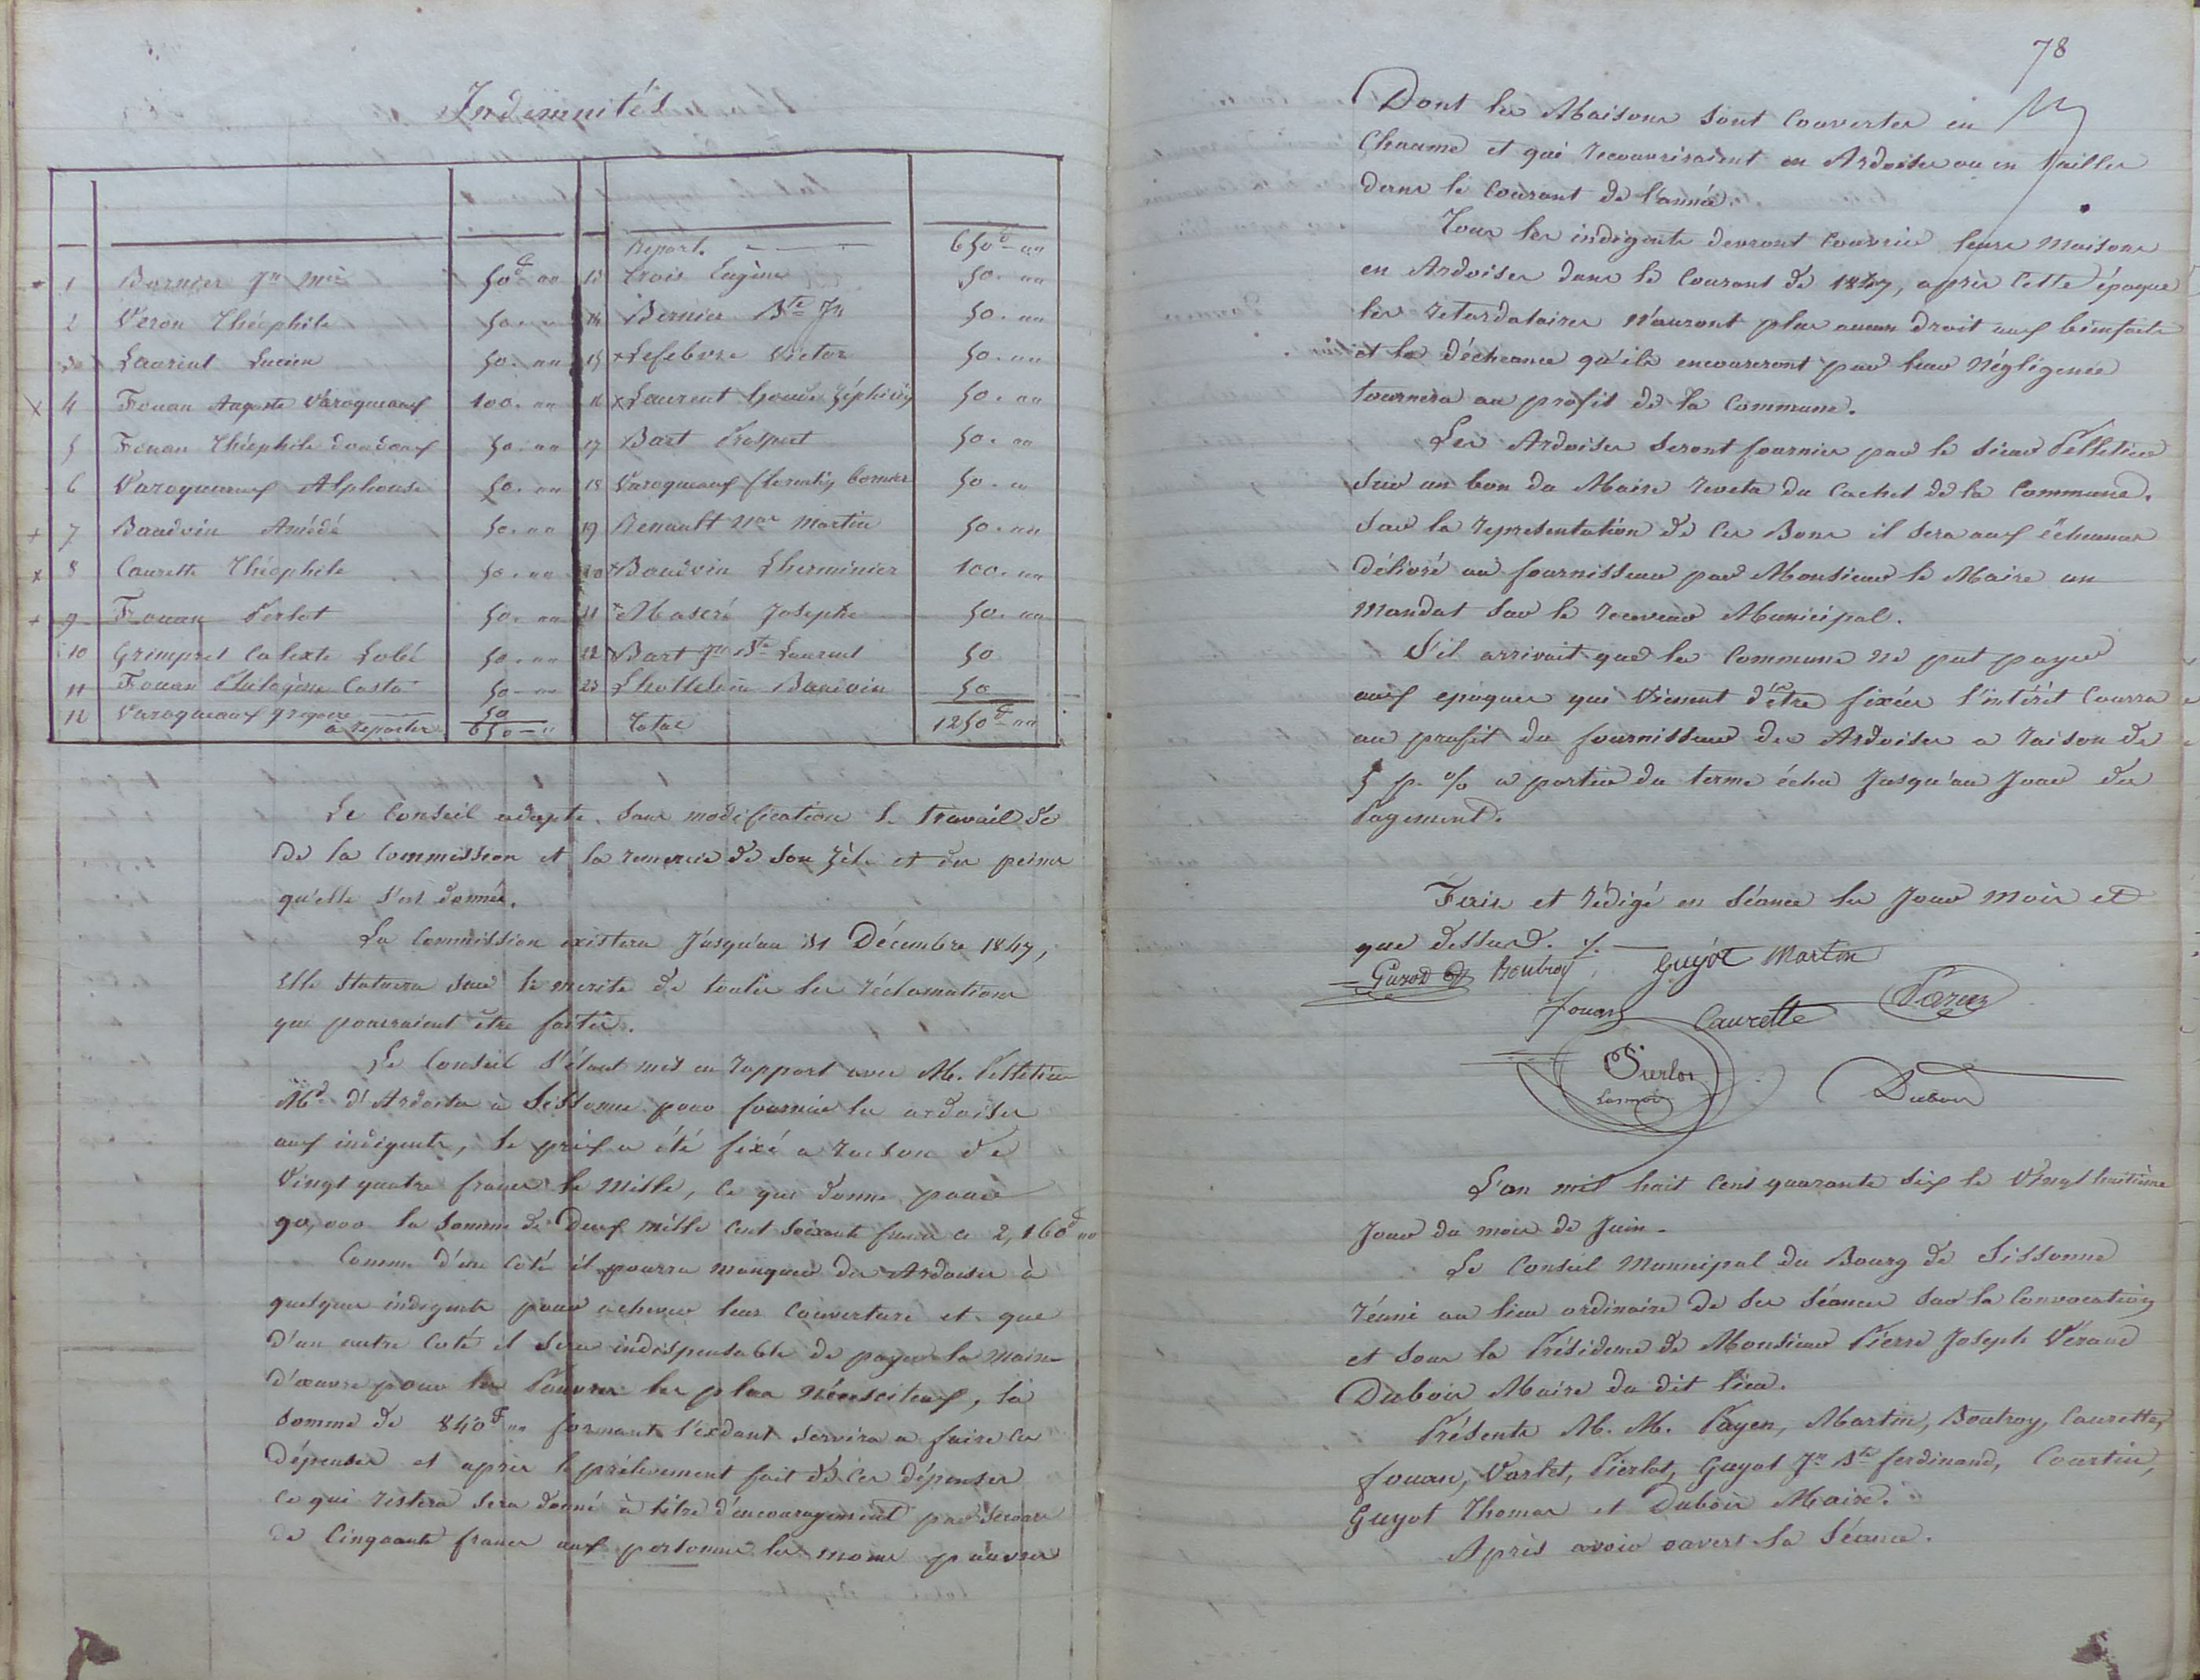 Indemnités
Report. 650f "
1 Bernier Jn Mie 50f "
2 Véron Théophile 50. "
3 Laurent Lucien 50. "
4 Fouan Auguste Varoqueaux 100. "
5 Fouan Théophile 50. "
6 Varoqueaux Alphonse 50. "
7 Baudvin Amédé 50. "
8 Caurette Théophile 50. "
9 Fouan Pierlot 50. "
10 Grimpret Calixte Lobé 50. "
11 Fouan Casta 50 "
12 Varoqueaux Grégoire 50
à reporter 650 - "
13 Crois Eugène 50. "
14 Bernier Bte Jn 50. "
15 Lefebvre Victor 50. "
16 Laurent Zéphirin 50. "
17 Bart Prospert 50. "
18 Varoqueaux 50. "
19 Renault Martin 50. "
20 Baudvin Lherminier 100. "
21 Mascré Josephe 50. "
22 Bart Jn Bte Laurent 50
23 Baudvin 50
Total 1250f "
Le Conseil adopte sans modification le travail de
de la Commission et la remercie de son zèle et des peines
qu'elle s'est donnée.
La Commission existera jusqu'au 31 Décembre 1847,
Elle statuera sur le merite de toutes les réclamations
qui pourraient être faites.
Le Conseil s'étant mis en rapport avec M. Pelletier
Md d'Ardoises à Sissonne pour fournir les ardoises
aux indigents, le prix a été fixé a raison de
Vingt quatre francs le mille, ce qui donne pour
90,000 la somme de Deux mille cent soixante francs ci 2,160f "
Comme d'un côté il pourra manquer des Ardoises à
quelques indigents pour achever leur couverture et que
d'un autre côté il sera indispensable de payer la main
d'œuvre pour les Pauvres les plus nécessiteux, la
somme de 840f " formant l'exdant servira a faire ces
dépenses et apres le prélevement fait de ces dépenses
ce qui restera sera donné à titre d'encouragement par secours
de Cinquante francs aux personnes les moins pauvres
78
Dont les Maisons sont couvertes en
Chaume et qui recouvriraient en Ardoises ou en tuilles
dans le courant de l'année.
Tous les indigents devront couvrir leurs Maisons
en Ardoises dans le courant de 1847, après cette époque
les retardataires n'auront plus aucun droit aux bienfaits
et la déchéance qu'ils encoureront par leur négligence
tournera au profit de la Commune.
Les Ardoises seront fournies par le sieur Pelletier
sur un bon du Maire revetu du cachet de la Commune.
sur la representation de ces Bons il sera aux échéances
délivré au fournisseur par Monsieur le Maire un
Mandat sur le receveur Municipal.
S'il arrivait que la Commune ne put payer
aux epoques qui viennent d'être fixées l'intérêt courra
au profit du fournisseur des Ardoises a raison de
5 p. % a partir du terme échu jusqu'au jour du
Payement.
Fais et rédigé en séance les jour mois et
que dessus. /.
Boutroy Guyot Martin
Fouan Caurette
Pierlot Dubois
L'an mil huit cent quarante six le vingt huitième
jour du mois de Juin.
Le Conseil Municipal du Bourg de Sissonne
réuni au lieu ordinaire de ses séances sur la convocation
et sous la Présidence de Monsieur Pierre Joseph Véraue
Dubois Maire du dit lieu.
Présents M. M. Payen, Martin, Boutroy, Caurette,
fouan, Varlet, Pierlot, Guyot Jn Bte ferdinand, Courtin,
Guyot Thomas et Dubois Maire.
Après avoir ouvert la séance.